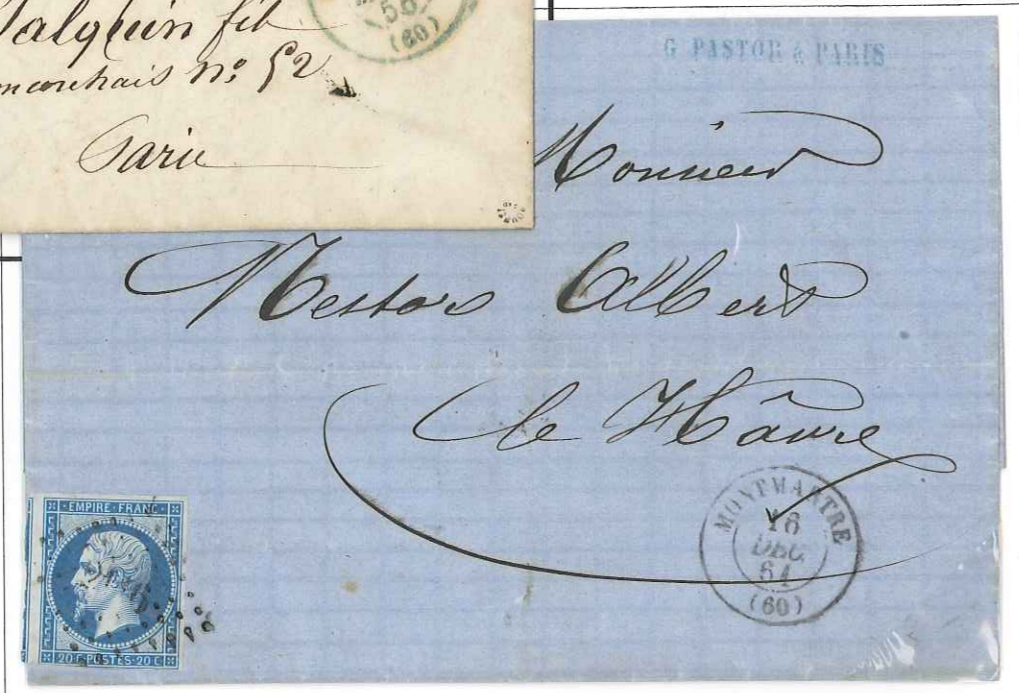 58
(60)
fils
No 52
Paris
G PASTOR à PARIS
Monsieur
Nestor Albert
le Hâvre
MONTMARTRE
16
DEC.
61
(60)
EMPIRE FRANC
20 C POSTES 20 C